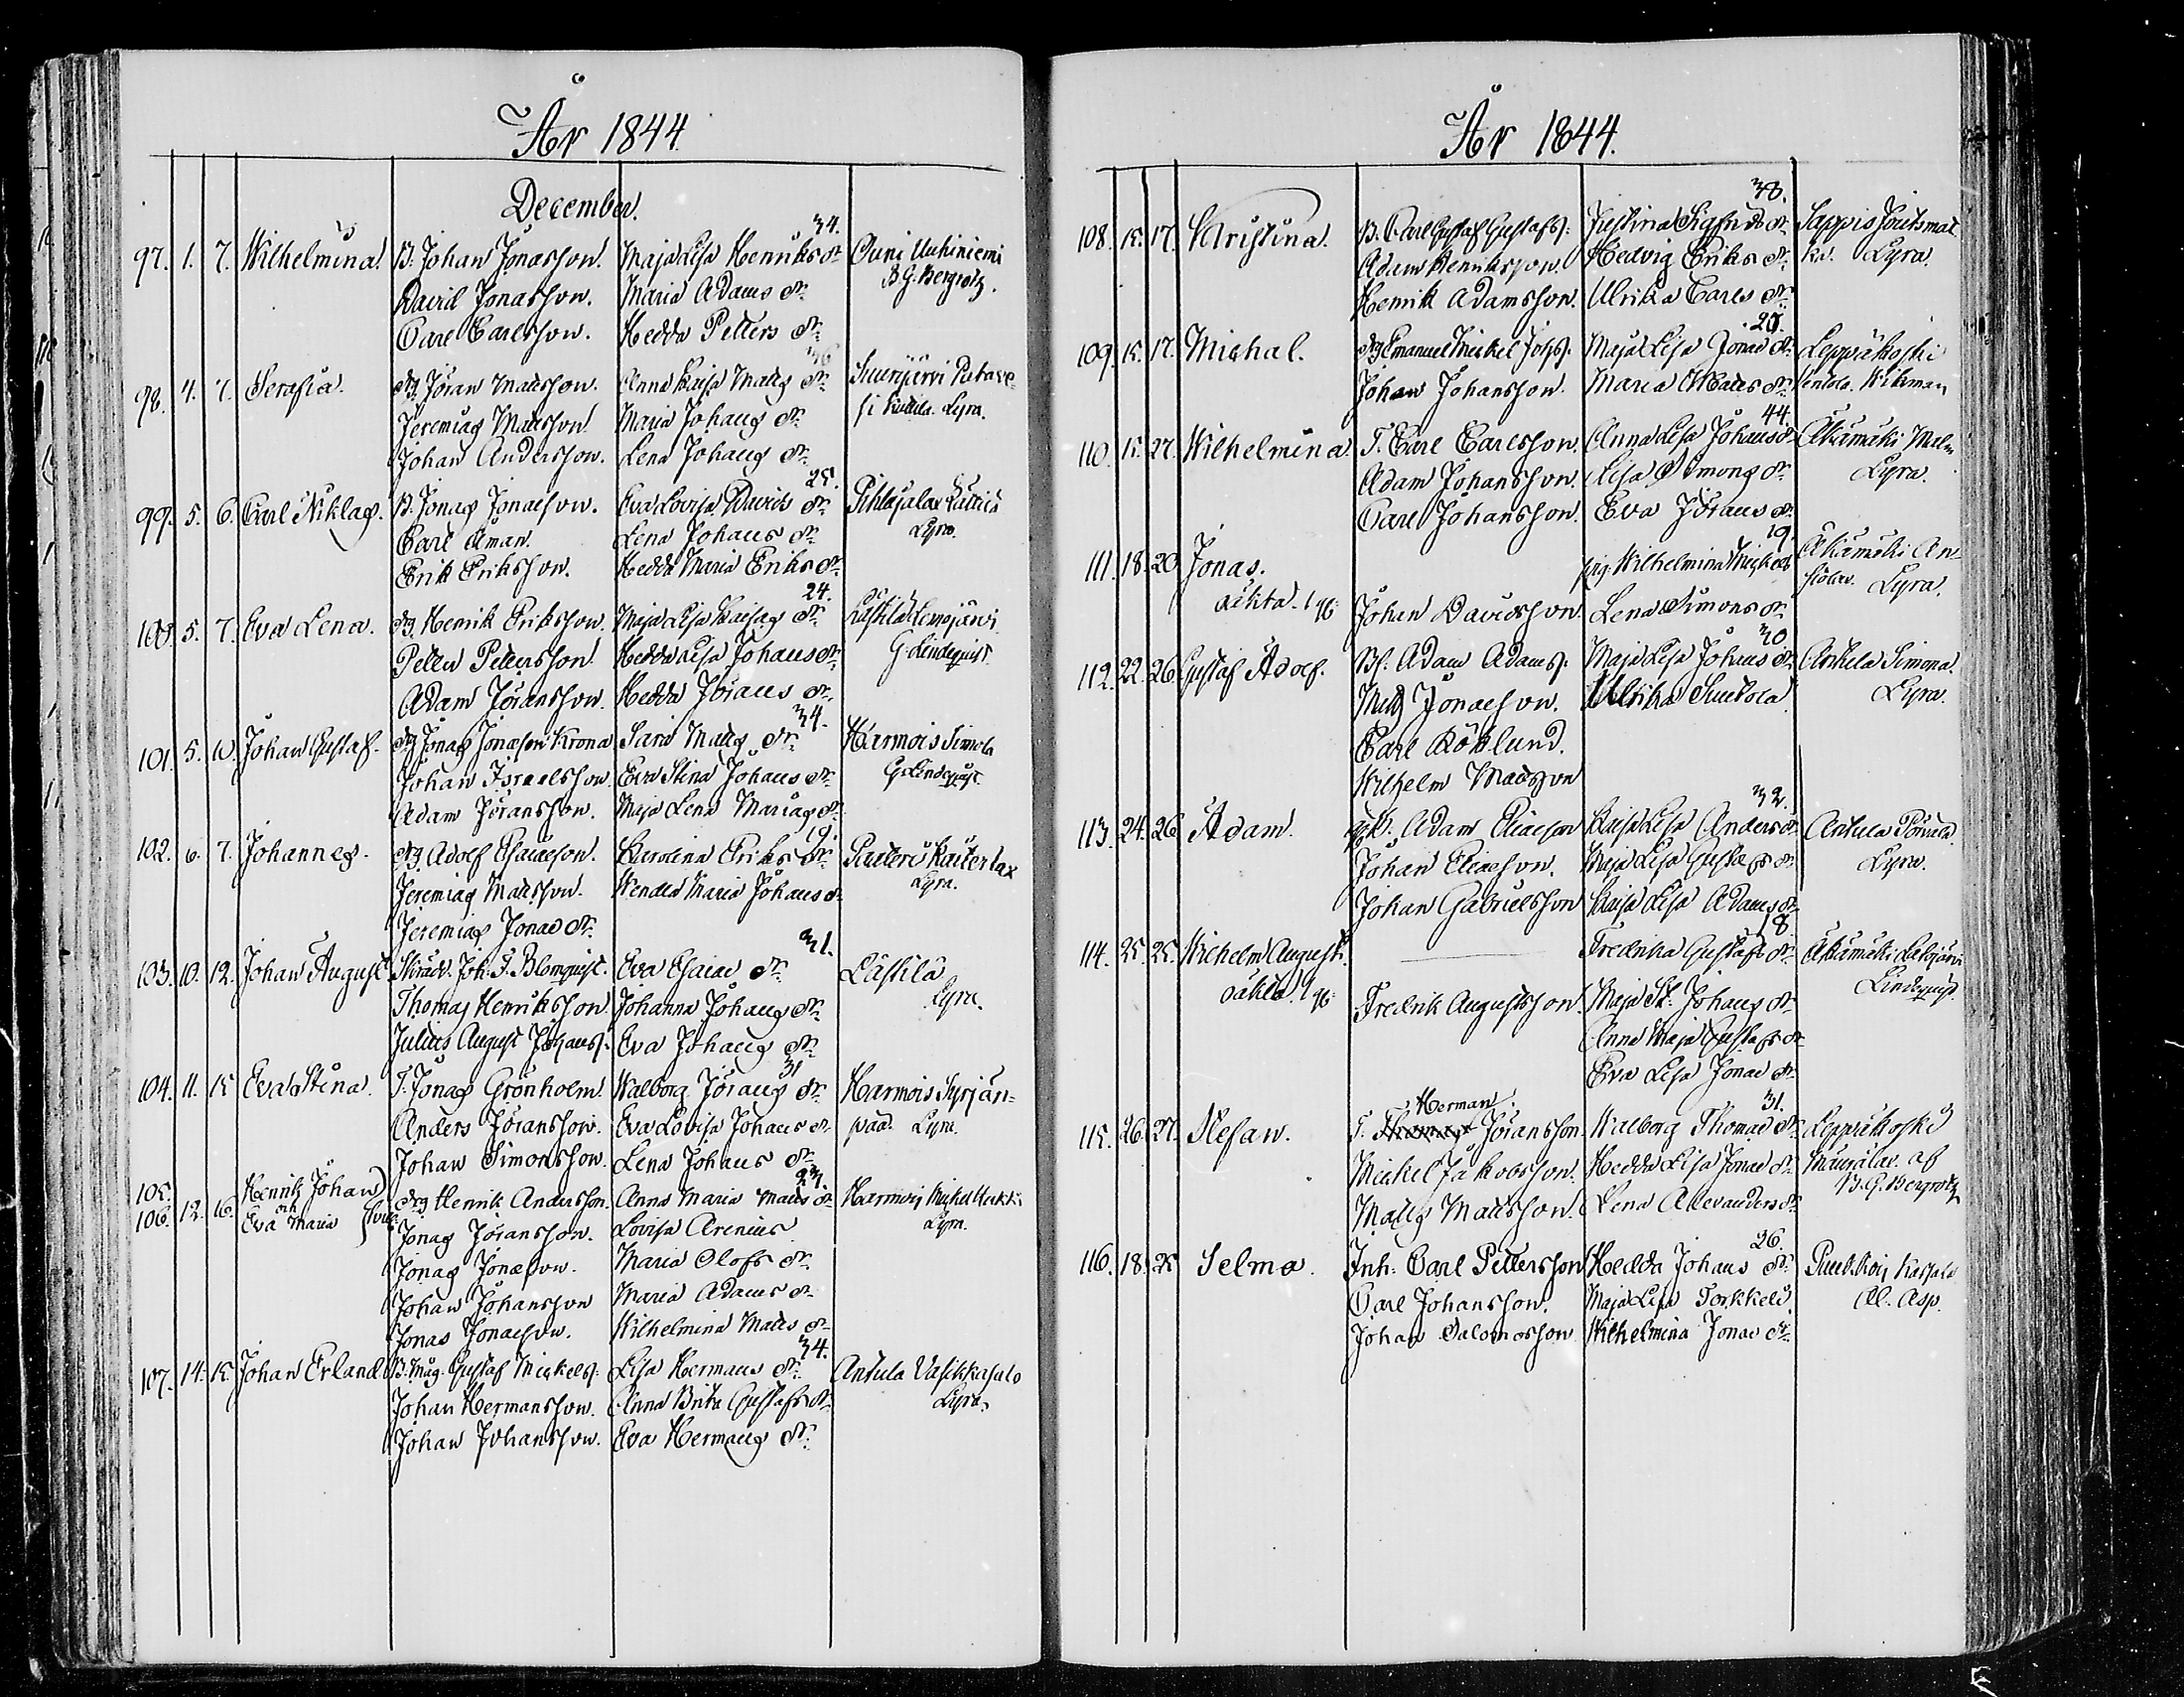 År 1844
December.
97. 1. 7. Wilhelmina. B. Johan Jonasson. Maja Lisa Henriks dr. 34. Ouni Uuhiniemi
David Jonasson. Maria Adams dr. B. G. Bergroth.
Carl Carlsson. Hedda Petters dr.
98. 4. 7. Serafia. Drg Jöran Matsson. Anna Kaisa Matts dr. 36
Jeremias Matsson. Maria Johans dr. Lyra.
Johan Andersson. Lena Johans dr.
99. 5. 6. Carl Niklas. B. Jonas Jonasson. Eva Lovisa Davids dr. 25. Pihlajalax
Carl Åman. Lena Johans dr. Lyra.
Erik Eriksson. Hedda Maria Eriks dr.
100. 5. 7. Eva Lena. Drg. Henrik Eriksson. Maja Lisa Kaisas dr. 24.
Petter Pettersson. Hedda Lisa Johans dr. G. Lindequist.
Adam Jöransson. Hedda Jörans dr.
101. 5. 10. Johan Gustaf. Drg Jonas Jonasson Krona Sara Matts dr. 34. Harmois Simola
Johan Israelsson Eva Stina Johans dr. G. Lindequist.
Adam Jöransson. Maja Lena Marias dr.
102. 6. 7. Johannes. Drg Adolf Esaiasson. Karolina Eriks dr. 19.
Jeremias Matsson. Wendla Maria Johans dr. Lyra.
Jeremias Jonas dr.
103. 10. 12. Johan August Skrädd. Joh. F. Blomquist. Eva Esaias dr. 31. Lässilä
Thomas Henriksson Johanna Johans dr. Lyra.
Julius August Johanss. Eva Johans dr.
104. 11. 15 Eva Stina. T. Jonas Grönholm. Walborg Jörans dr. 31 Harmois Syrjän-
Anders Jöransson. Eva Lovisa Johans dr. pää. Lyra.
Johan Simonsson. Lena Johans dr.
105. 106. 12. 16. Henrik Johan och Eva Maria Drg Henrik Andersson. Anna Maria Matts dr. Harmois
Jonas Jöransson. Lovisa Arenius Lyra.
Jonas Jonasson. Maria Olofs dr.
Johan Johansson Maria Adams dr.
Jonas Jonasson. Wilhelmina Matts dr.
107. 14. 15. Johan Erland B. Måg. Gustaf Mickelss. Lisa Hermans dr. 34. Antula Vasikkasalo
Johan Hermansson. Anna Brita Gustafs dr. Lyra.
Johan Johansson. Eva Hermans dr.
År 1844.
108. 15. 17. Kristina. B. Carl Gustaf Gustafss. Justina Sigfrids dr. 38. Sappis Joutsmat
Adam Henriksson. Hedvig Eriks dr. Lyra.
Henrik Adamsson. Ulrika Carls dr.
109. 15. 17. Michal. Drg Emanuel Mickel Johss. Maja Lisa Jonas dr. Leppäkoski
Johan Johansson. Maria Matts dr. Wikman
110. 15. 27. Wilhelmina T. Carl Carlsson. Anna Lisa Johans dr. 44. Äkämäki
Adam Johansson. Lisa Simons dr. Lyra.
Carl Johansson. Eva Jörans dr.
111. 18. 20. Jonas. pig. Wilhelmina Mickels 19. Äkämäki An-
oäkta. Johan Davidsson. Lena Simons dr. Lyra.
112. 22. 26. Gustaf Adolf. Bf. Adam Adamss. Maja Lisa Johans dr. 30 Antula Simona.
Matts Jonasson. Ulrika Sucksola Lyra.
Carl Köklund.
Wilhelm Matsson
113. 24. 26 Adam. Adam Eliasson Kaisa Lisa Anders dr. 32. Antula
Johan Eliasson. Maja Lisa Gustafs dr. Lyra.
Johan Gabrielsson Kaisa Lisa Adams dr.
114. 25. 25. Wilhelm August. Fredrika Gustafs dr. 18 Äkämäki
oäkta. Fredrik Augustsson. Maja St. Johans dr. Lindequist.
Anna Maja Gustafs dr.
Eva Lisa Jonas dr.
Herman
115. 26. 27. Stefan. T. Thomas Jöransson. Walborg Thomas dr. 31. Leppäkoski
Mickel Jakobsson. Hedda Lisa Jonas dr. af
Matts Matsson. Lena Alexanders dr. B. G. Bergroth
116. 18. 25 Selma. Inh. Carl Pettersson Hedda Johans dr. 26.
Carl Johansson. Maja Lisa Torkkeli. Al. Asp.
Johan Salomosson Wilhelmina Jonas dr.